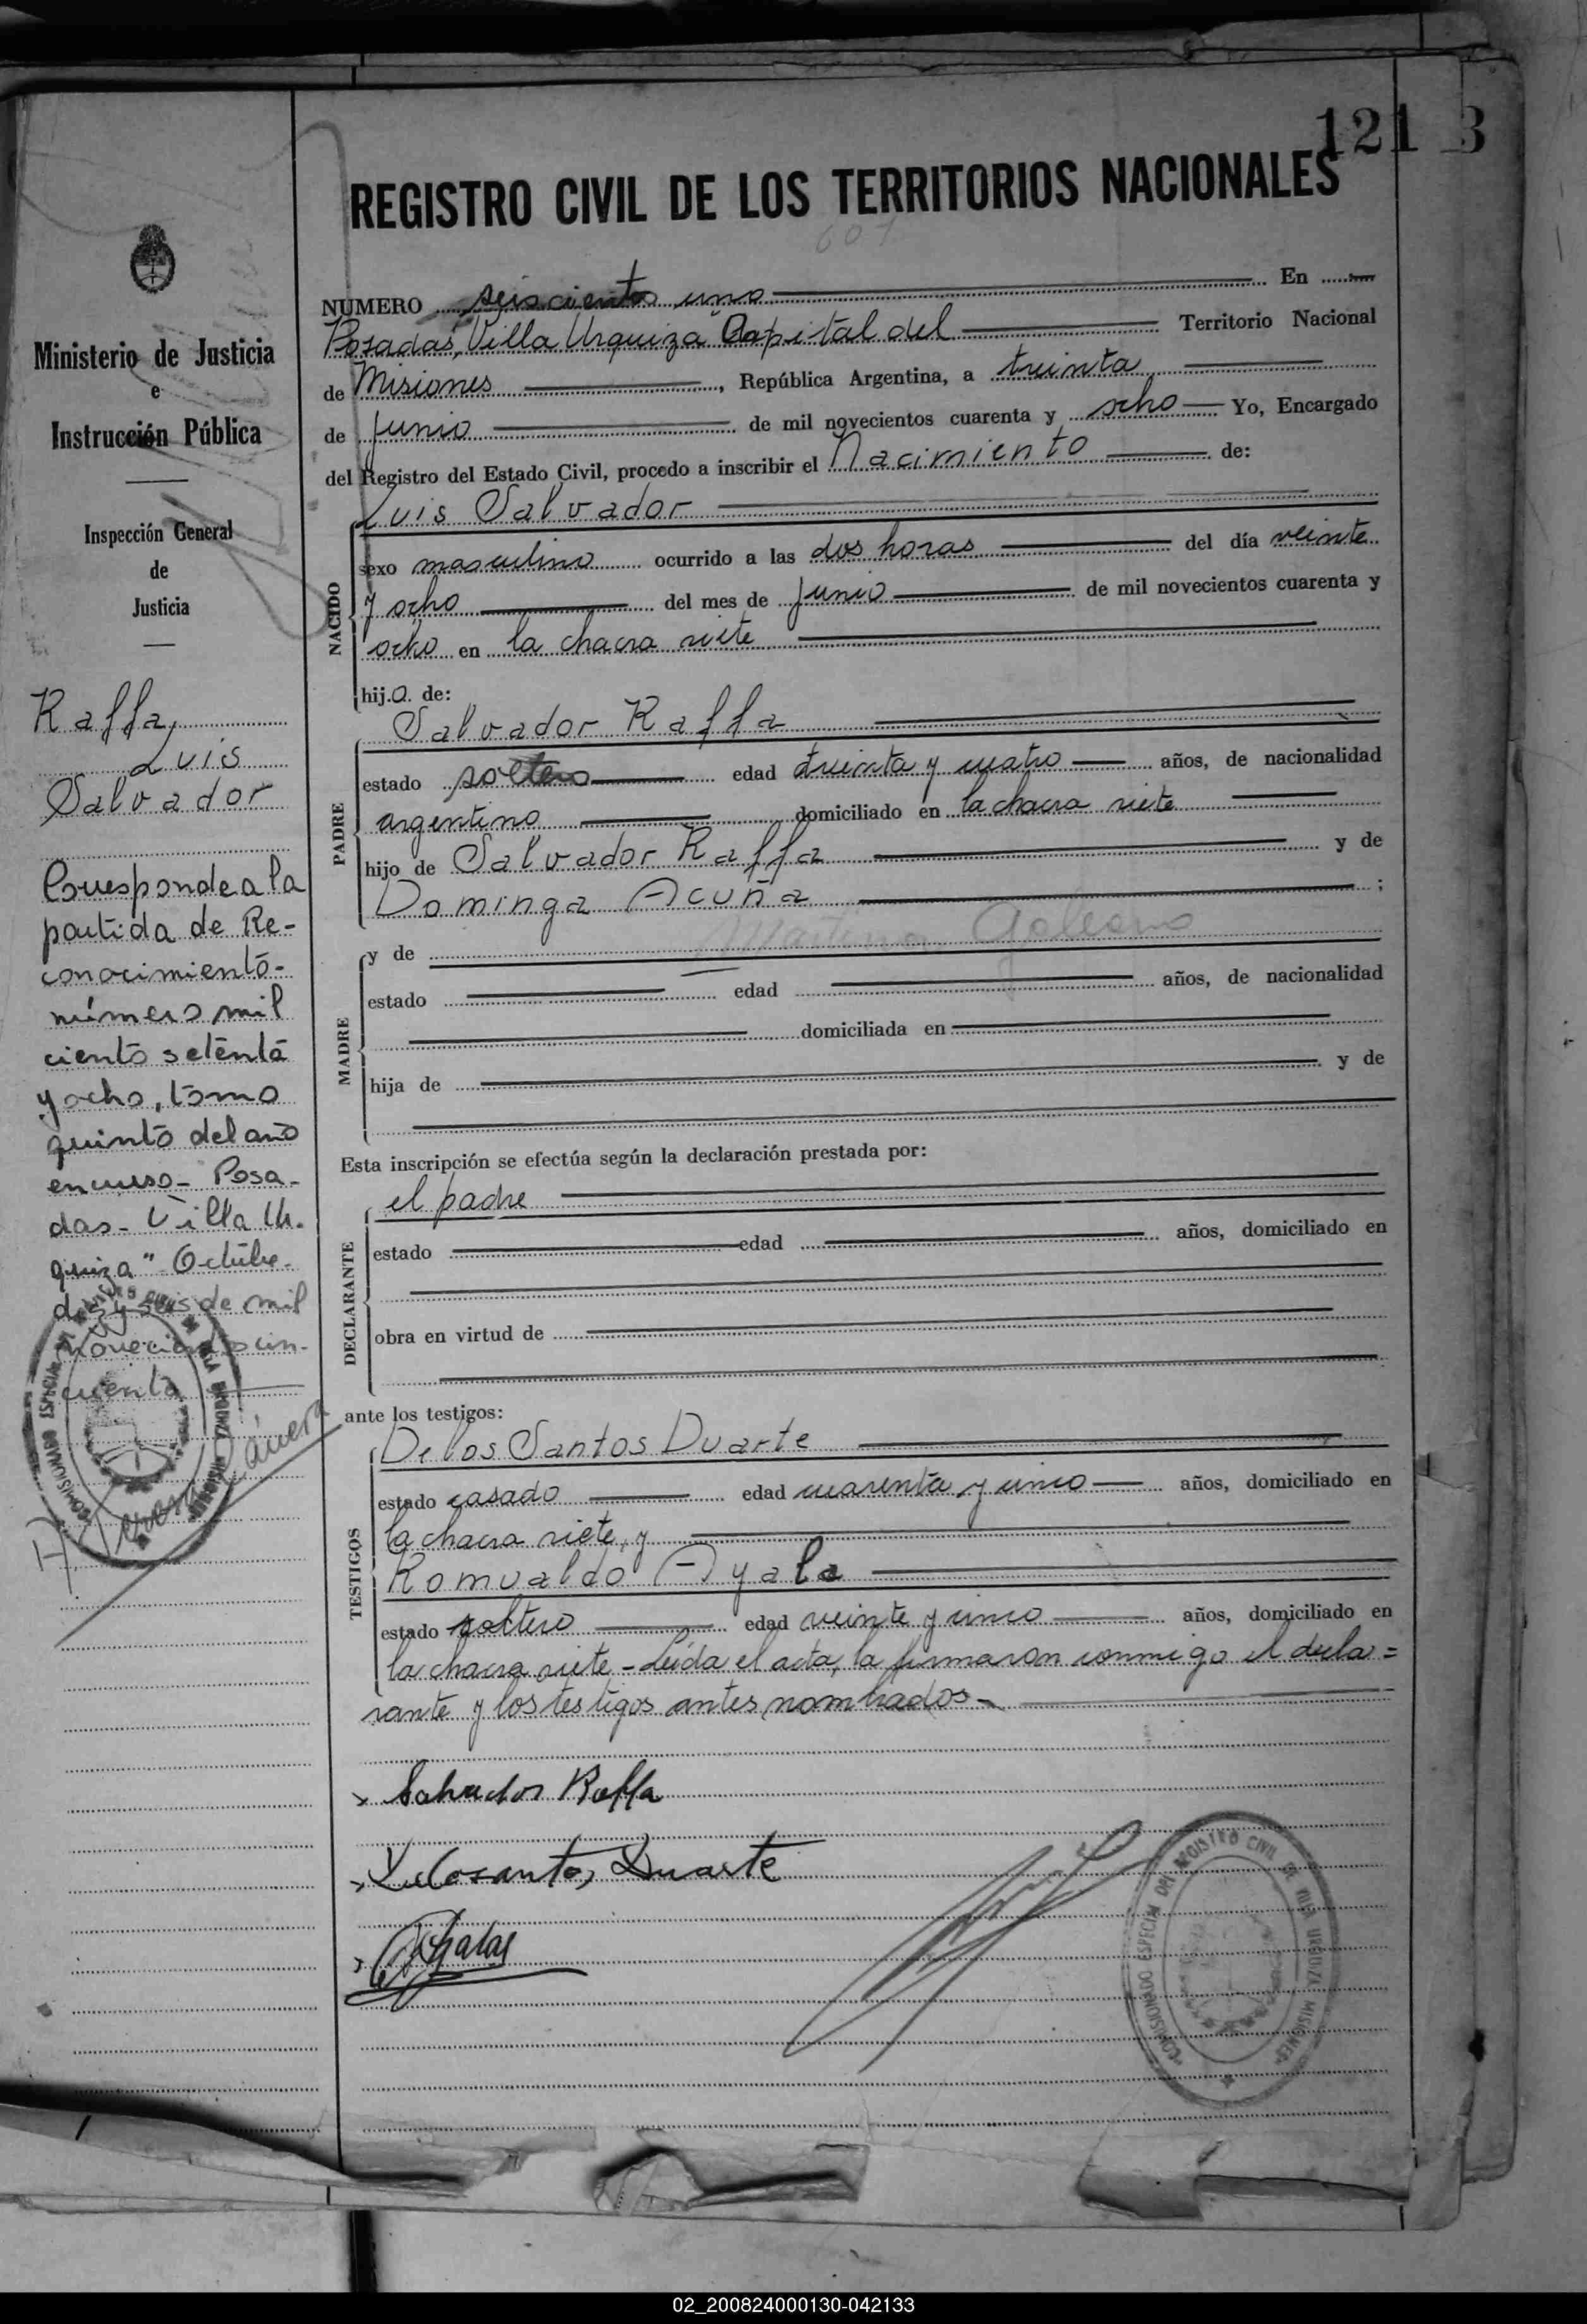 121 3
REGISTRO CIVIL DE LOS TERRITORIOS NACIONALES
601
Ministerio de Justicia
e
Instrucción Pública
Inspección General
de
Justicia
Raffa,
Luis
Salvador
Corresponde a la
partida de Re-
conocimiento-
número mil
ciento setenta
y ocho, tomo
quinto del año
en curso - Posa-
das - Villa Ur-
quiza" - Octubre -
diez y seis de mil
novecientos cin-
cuenta
NUMERO seiscientos uno En
Posadas, Villa Urquiza" Capital del Territorio Nacional
de Misiones, República Argentina, a treinta
de junio de mil novecientos cuarenta y ocho Yo, Encargado
del Registro del Estado Civil, procedo a inscribir el Nacimiento de:
Luis Salvador
NACIDO
sexo masculino ocurrido a las dos horas del día veinte
y ocho del mes de junio de mil novecientos cuarenta y
ocho en la chacra siete
hijo de:
PADRE
Salvador Raffa
estado soltero edad treinta y cuatro años, de nacionalidad
argentino domiciliado en la chacra siete
hijo de Salvador Raffa y de
Dominga Acuña ;
MADRE
y de Martina Galeano
estado edad años, de nacionalidad
domiciliada en
hija de y de
Esta inscripción se efectúa según la declaración prestada por:
DECLARANTE
el padre
estado edad años, domiciliado en
obra en virtud de
ante los testigos:
TESTIGOS
De los Santos Duarte
estado casado edad cuarenta y cinco años, domiciliado en
la chacra siete, y
Romualdo Ayala
estado soltero edad veinte y cinco años, domiciliado en
la chacra siete - Leída el acta, la firmaron conmigo el decla=
rante y los testigos antes nombrados -
Salvador Raffa
Delosantos Duarte
COMISIONADO ESPECIAL DEL REGISTRO CIVIL DE VILLA URQUIZA MISIONES
02_200824000130-042133